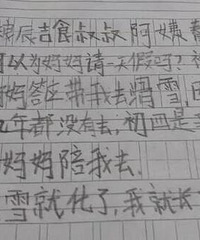 展吉食叔叔 阿姨
可以为妈妈请一天假吗?
妈妈答应带我去滑雪,
2年都没有去,初四是
妈妈陪我去.
雪就化了,我就长